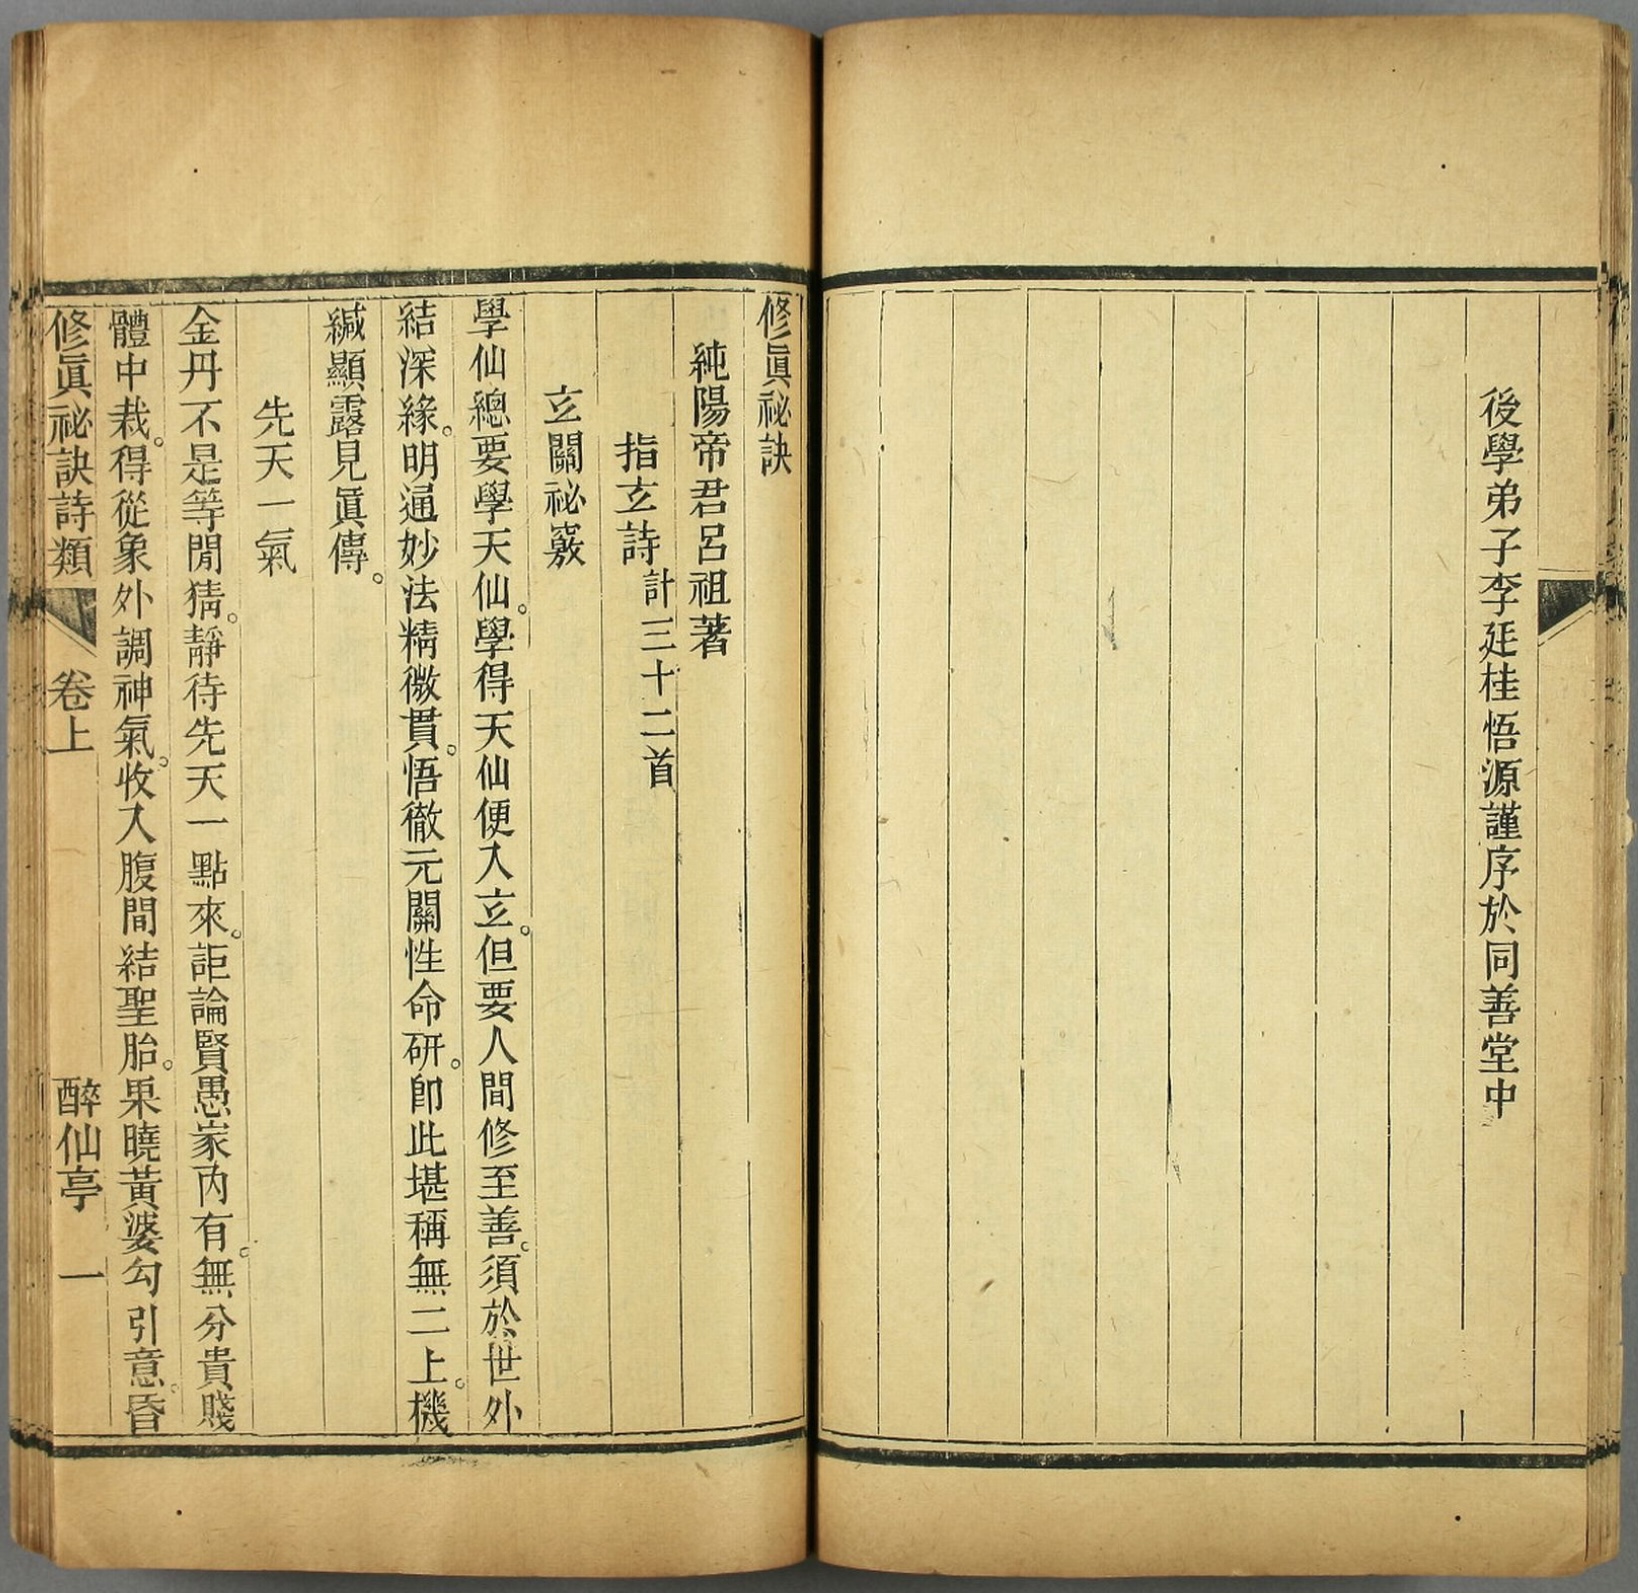 後學弟子李廷桂悟源謹序於同善堂中
修眞祕訣
純陽帝君呂祖著
指玄詩計三十二首
玄關祕竅
學仙總要學天仙。學得天仙便入玄。但要人間修至善。須於世外
結深緣。明通妙法精微貫。悟徹元關性命硏。卽此堪稱無二上。機
緘顯露見眞傳。
先天一氣
金丹不是等閒猜。靜待先天一點來。詎論賢愚家內有。無分貴賤
體中栽。得從象外調神氣。收入腹間結聖胎。果曉黃婆勾引意。昏
修眞祕訣詩類 卷上 醉仙亭 一